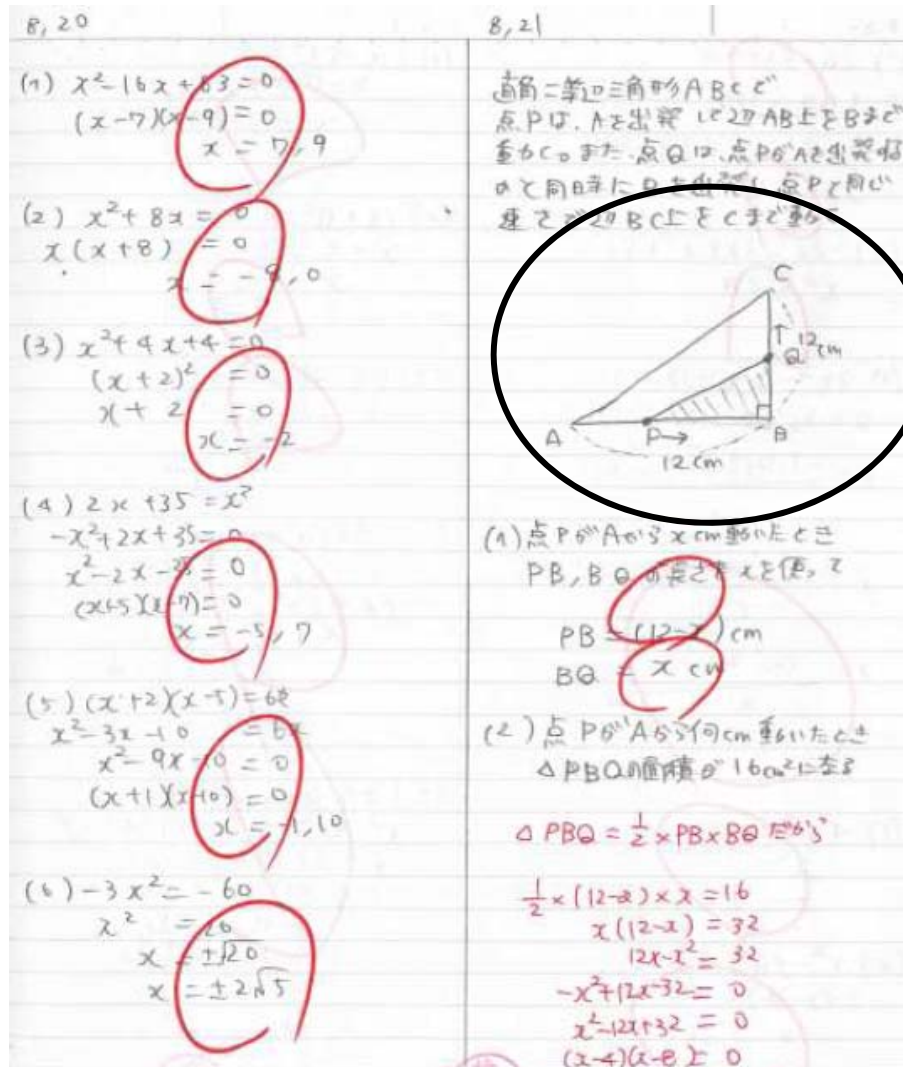 8,20
(1) x²-16x+63=0
(x-7)(x-9)=0
x=7,9
(2) x²+8x=0
x(x+8)=0
x=-8,0
(3) x²+4x+4=0
(x+2)²=0
x+2=0
x=-2
(4) 2x+35=x²
-x²+2x+35=0
x²-2x-35=0
(x+5)(x-7)=0
x=-5,7
(5) (x+2)(x-5)=6x
x²-3x-10=6x
x²-9x-10=0
(x+1)(x-10)=0
x=-1,10
(6) -3x²=-60
x²=20
x=±√20
x=±2√5
8,21
直角二等辺三角形ABCで
点Pは、Aを出発して辺AB上をBまで
動く。また、点Qは、点PがAを出発する
のと同時にBを出発し、点Pと同じ
速さで辺BC上をCまで動く
C
↑
Q 12cm
A P→ B
12cm
(1) 点PがAからxcm動いたとき
PB,BQの長さをxを使って
PB=(12-x)cm
BQ=xcm
(2) 点PがAから何cm動いたとき
△PBQの面積が16cm²になる
△PBQ=1/2×PB×BQだから
1/2×(12-x)×x=16
x(12-x)=32
12x-x²=32
-x²+12x-32=0
x²-12x+32=0
(x-4)(x-8)=0